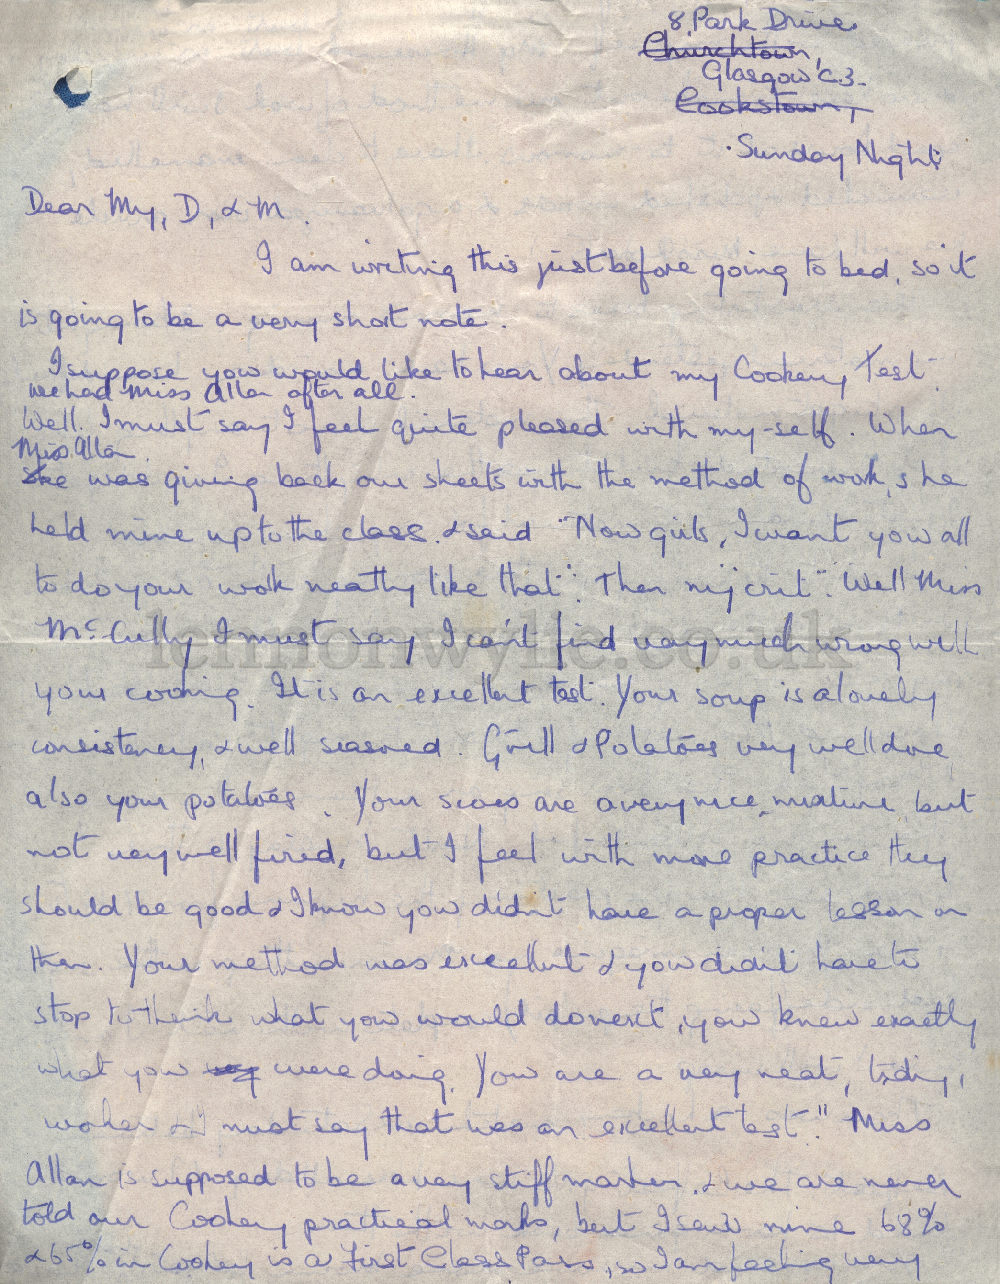 8, Park Drive
Churchtown,
Glasgow C.3.
Cookstown,
Sunday Night
Dear My, D, & M.
I am writing this just before going to bed, so it
is going to be a very short note.
I suppose you would like to hear about my Cookery Test.
we had Miss Allan after all.
Well. I must say I feel quite pleased with my-self. When
Miss Allan
She was giving back our sheets with the method of work, she
held mine up to the class & said "Now girls, I want you all
to do your work neatly like that". Then my crit "Well Miss
McCully I must say I can't find very much wrong with
lemonwylie.co.uk
your cooking. It is an excellent test. Your soup is a lovely
consistency, & well seasoned. Grill & Potatoes very well done
also your potatoes. Your scones are a very nice mixture, but
not very well fired, but I feel with more practice they
should be good & I know you didn't have a proper lesson on
them. Your method was excellent & you didn't have to
stop to think what you would do next, you knew exactly
what you were doing. You are a very neat, tidy,
worker & I must say that was an excellent test." Miss
Allan is supposed to be a very stiff marker, & we are never
told our Cookery practical marks, but I saw mine 68%
& 65% in Cookery is a First Class Pass, so I am feeling very